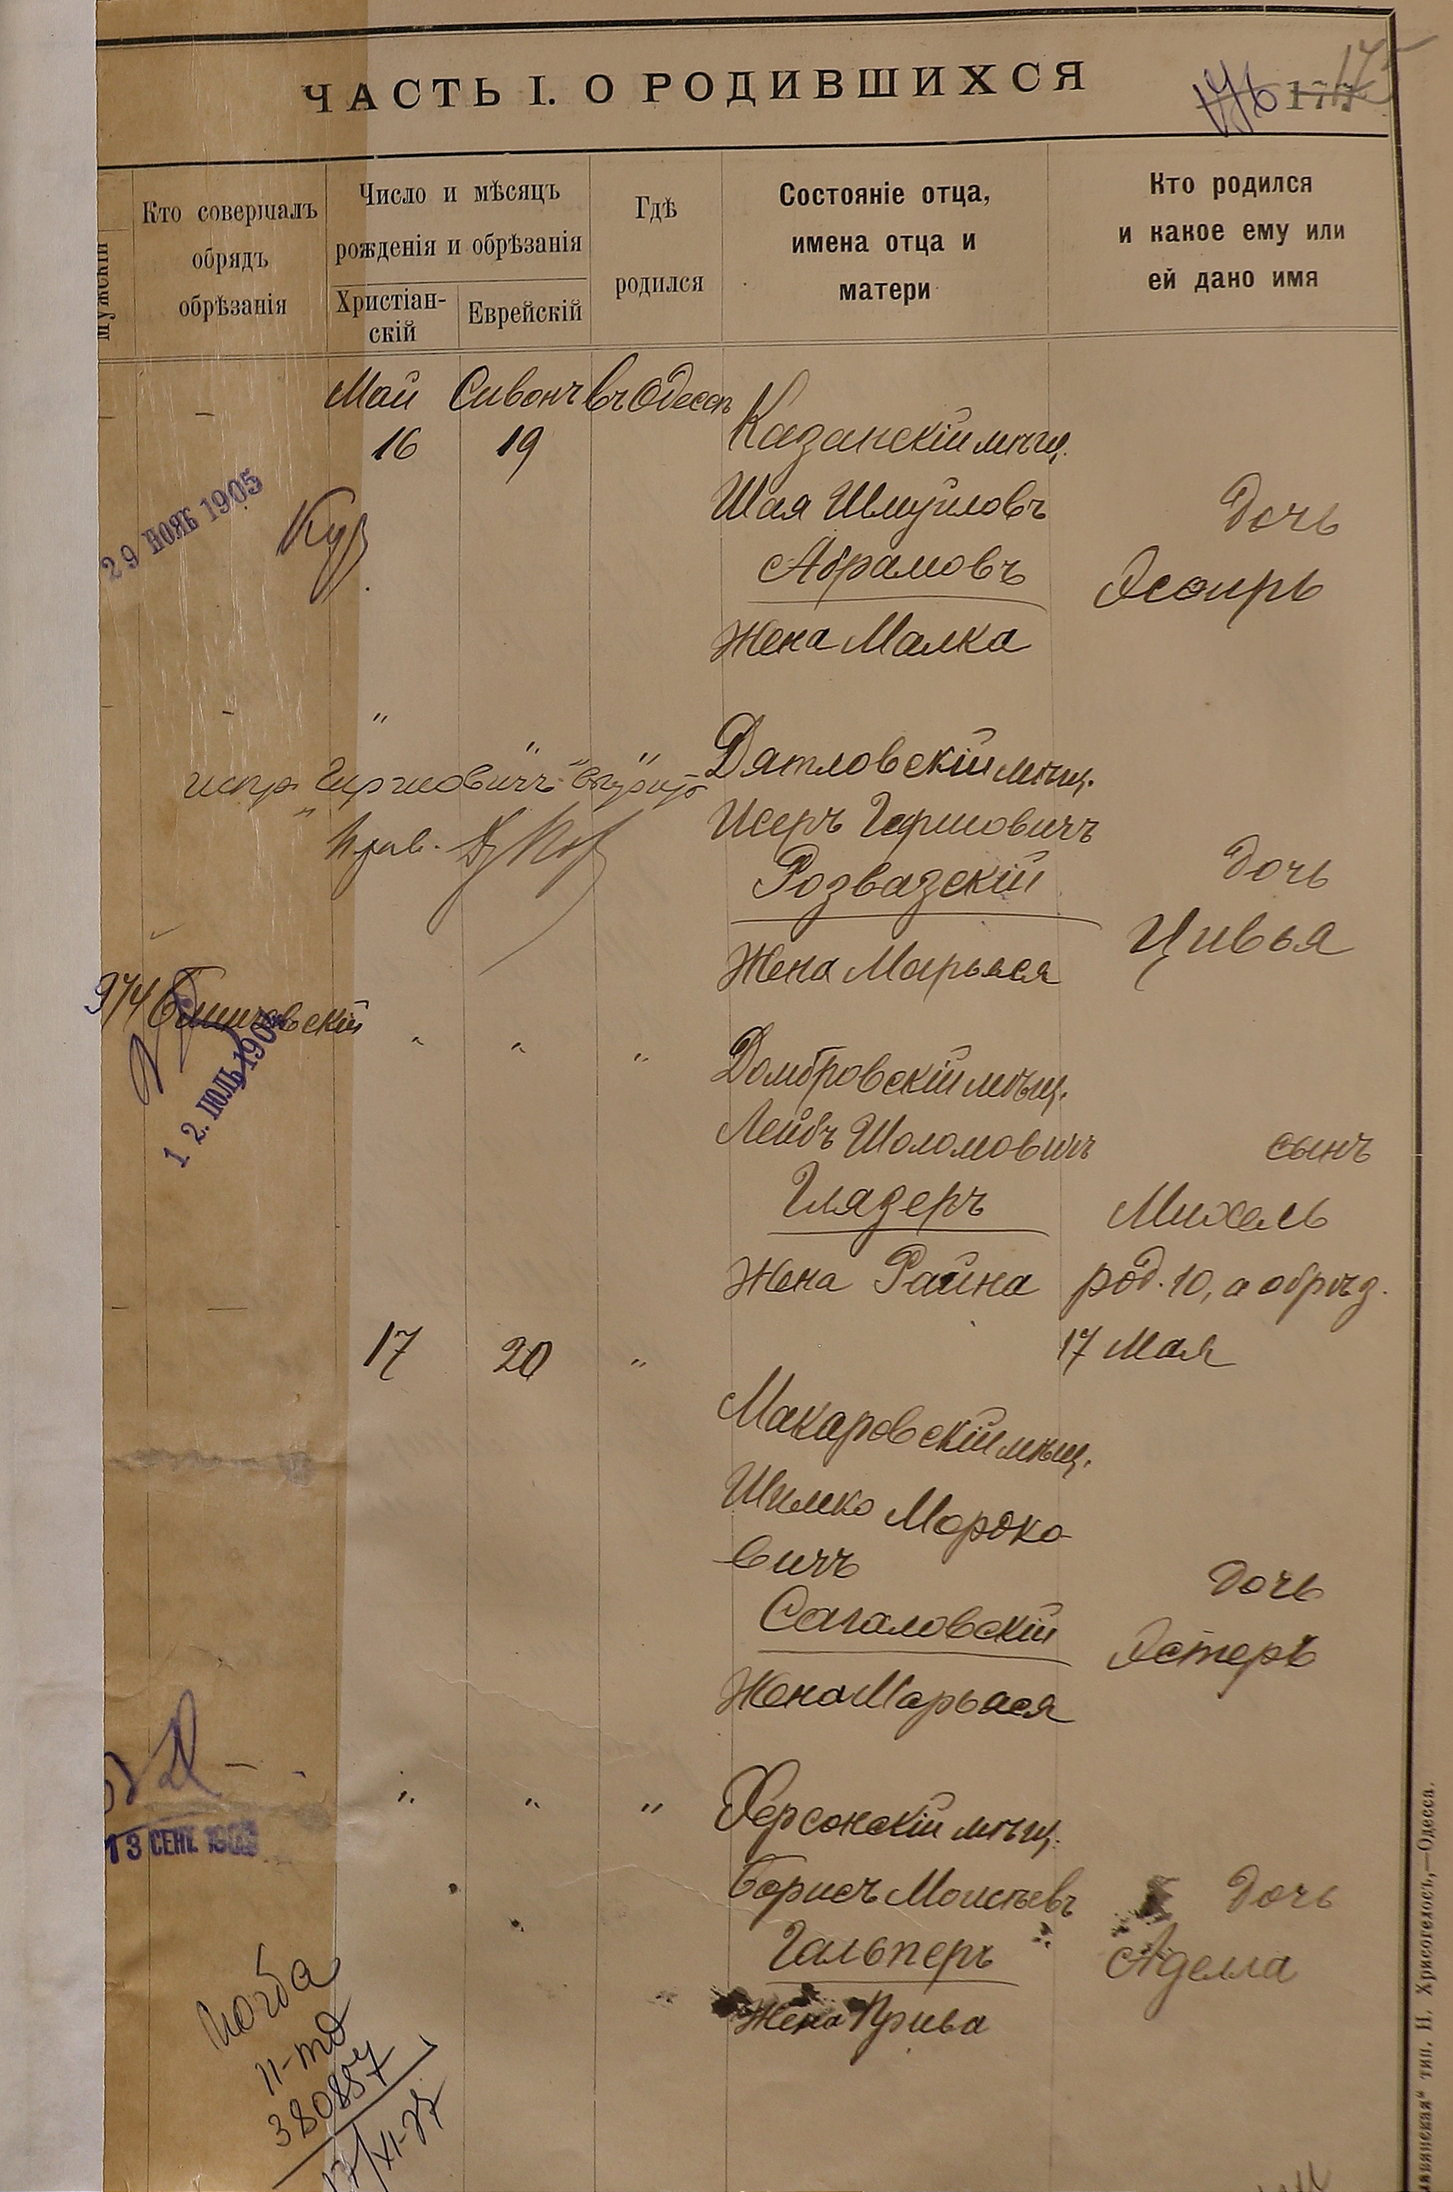 ЧАСТЬ I. О РОДИВШИХСЯ
176 177 175
мужскій
Кто совершалъ
обрядъ
обрѣзанія
Число и мѣсяцъ
рожденія и обрѣзанія
Христіан-
скій
Еврейскій
Гдѣ
родился
Состояніе отца,
имена отца и
матери
Кто родился
и какое ему или
ей дано имя
Май Сивонъ въ Одессѣ
16 19
Казанскій мѣщ.
Шая Шмуиловъ
Абрамовъ
Жена Малка
дочь
Эсѳирь
29 НОЯБ 1905
" " "
Дятловскій мѣщ.
Исеръ Гершовичъ
Розвазскій
Жена Марьяся
дочь
Цивья
испр. Гершовичъ
974
12. ІЮЛЬ 190
" " "
Домбровскій мѣщ.
Лейбъ Шоломовичъ
Глязеръ
Жена Райна
сынъ
Михель
род. 10, а обрѣз.
17 Мая
17 20 "
Макаровскій мѣщ.
Шимко Мордко-
вичъ
Сагаловскій
Жена Марьяся
дочь
Эстеръ
13 СЕНТ. 190
" " "
Херсонскій мѣщ.
Борисъ Моисѣевъ
Гальперъ
Жена Прива
дочь
Аделла
11-МД
380857
17/XI-27
тип. Н. Хрисогелосъ,—Одесса.